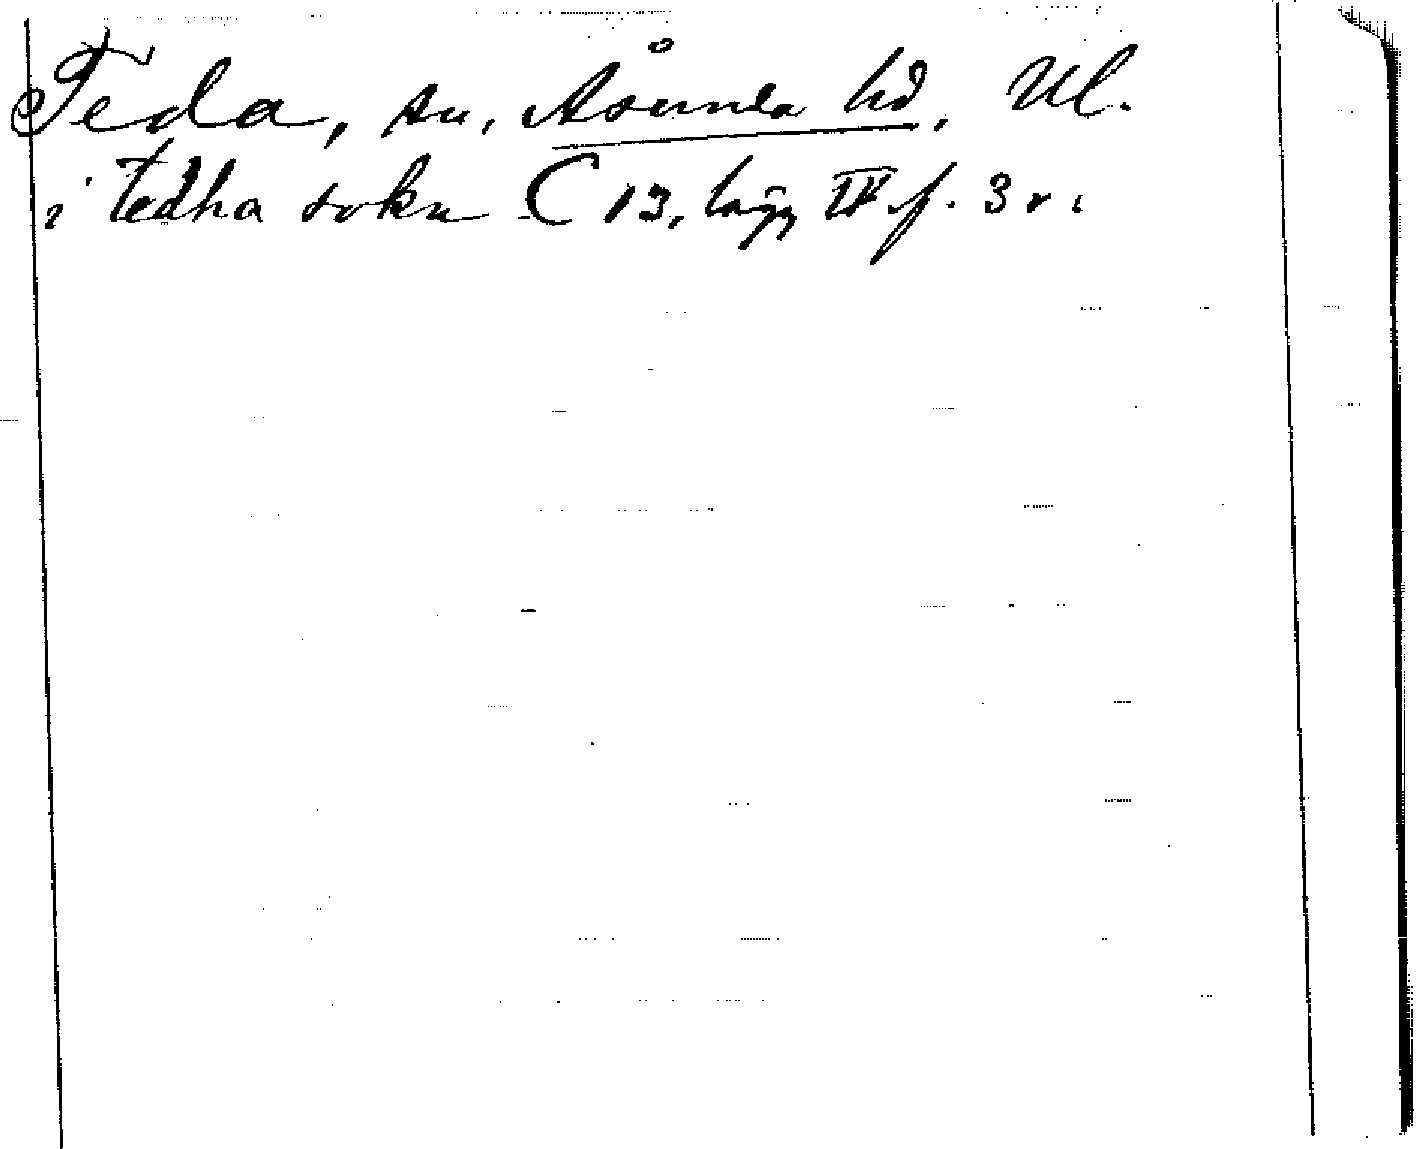 Teda, sn, Åsunda hd, Ul.
i tedha sokn C 13, lägg IV f. 3 r.